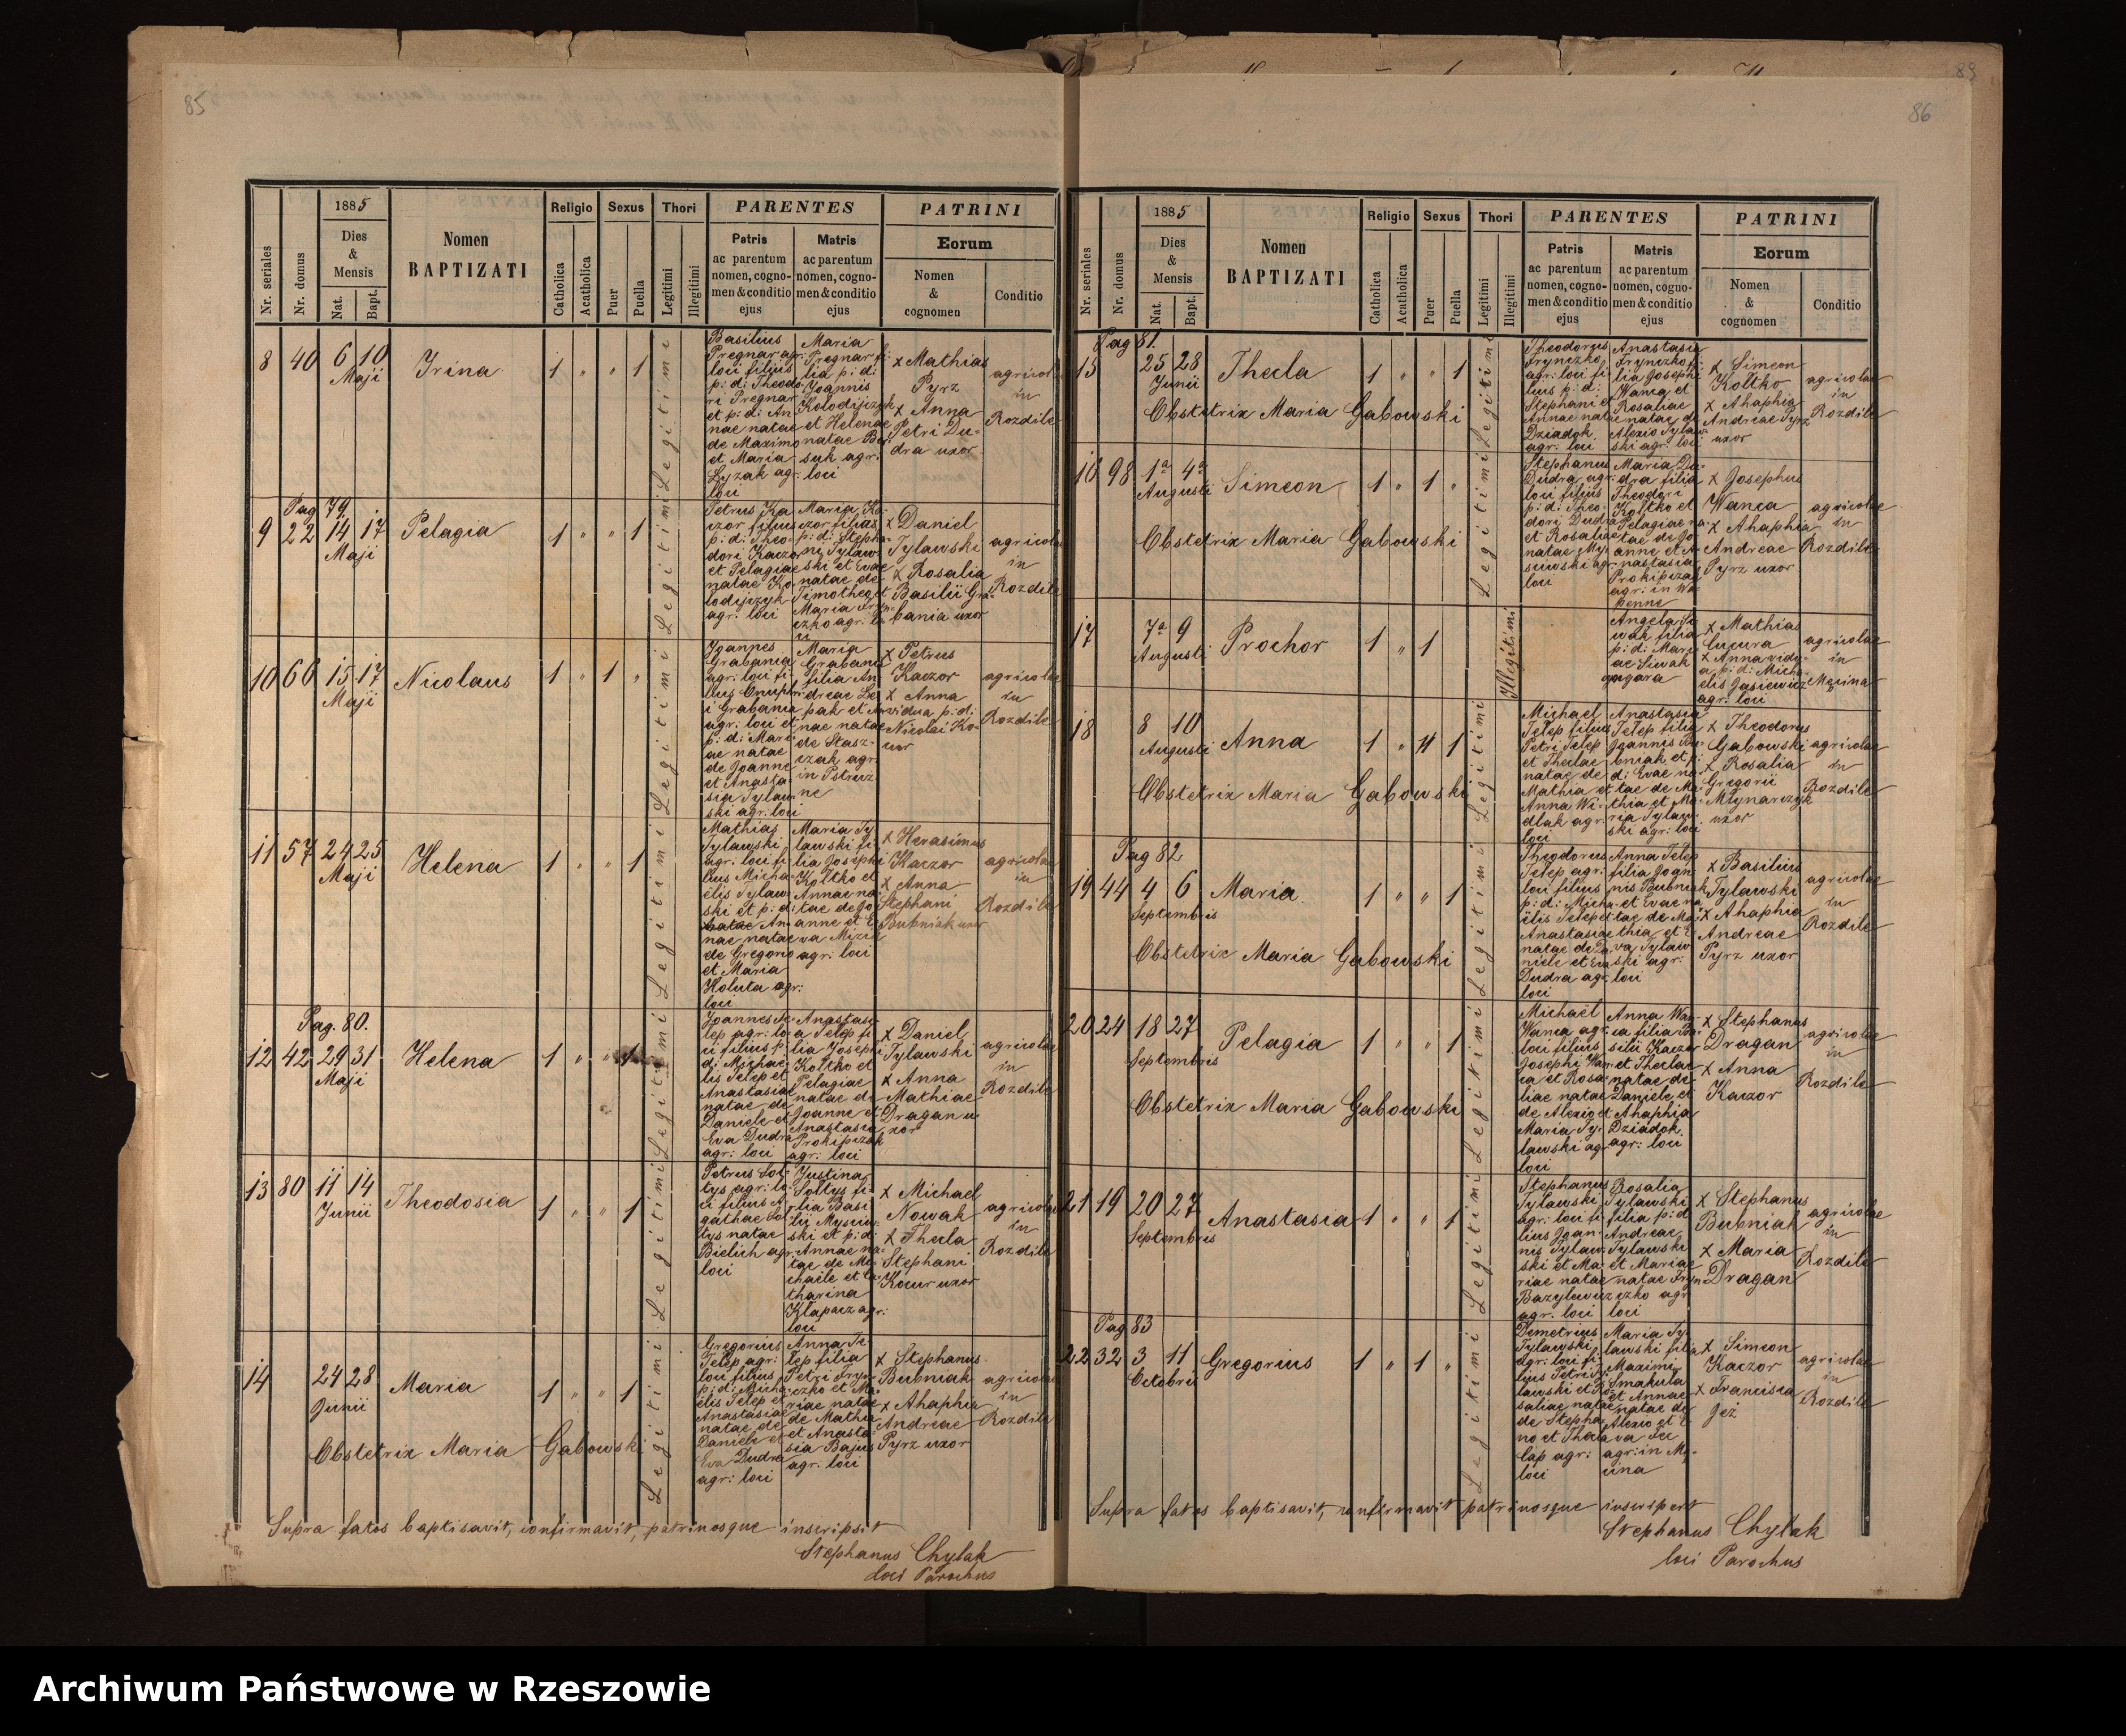 85
1885
Religio Sexus Thori PARENTES PATRINI
Nr. seriales
Nr. domus
Dies
&
Mensis
Nat.
Bapt.
Nomen
BAPTIZATI
Catholica
Acatholica
Puer
Puella
Legitimi
Illegitimi
Patris
ac parentum
nomen, cogno-
men & conditio
ejus
Matris
ac parentum
nomen, cogno-
men & conditio
ejus
Eorum
Nomen
&
cognomen
Conditio
8 40 6 10 Irina 1 " " 1 Legitimi
Maji
Basilius
Pregnar agr:
loci filius
p: d: Theodo-
ri Pregnar
et p: d: An-
nae natae
de Maximo
et Maria
Lyzak agr:
loci
Maria
Pregnar fi-
lia p: d:
Joannis
Kolodijczyk
et Helenae
natae
suk agr:
loci
x Mathias
Pyrz
x Anna
Petri Du-
dra uxor
agricolae
in
Rozdile
Pag 79.
9 22 14 17 Pelagia 1 " " 1 Legitimi
Maji
Petrus Ka
czor filius
p: d: Theo-
dori Kaczor
et Pelagiae
natae Ko-
lodijczyk
agr: loci
Maria Ka-
czor filia
p: d: Stepha-
ni Tylaw-
ski et Evae
natae de
Timotheo et
Maria Fryn-
czko agr: lo-
ci
x Daniel
Tylawski
x Rosalia
Basilii Gra-
bania uxor
agricolae
in
Rozdile
10 66 15 17 Nicolaus 1 " 1 " Legitimi
Maji
Joannes
Grabania
agr: loci fi-
lius Onuphri-
i Grabania
agr: loci et
p: d: Mari-
ae natae
de Joanne
et Anasta-
sia Tylaw-
ski agr: loci
Maria
Grabania
filia An-
dreae Le-
pak et An-
nae natae
de Stasz-
czak agr:
in Pstrąz-
ne
x Petrus
Kaczor
x Anna
vidua p: d:
Nicolai Ko-
cur
agricolae
in
Rozdile
11 57 24 25 Helena 1 " " 1 Legitimi
Maji
Mathias
Tylawski
agr: loci fi-
lius Micha-
elis Tylaw-
ski et p: d:
natae An-
nae natae
de Gregorio
et Maria
Holuta agr:
loci
Maria Ty-
lawski fi-
lia Josephi
Koltko et
Annae na-
tae de Jo-
anne et E-
va Mizia
agr: loci
x Herasimus
Kaczor
x Anna
Stephani
Bubniak uxor
agricolae
in
Rozdile
Pag. 80.
12 42 29 31 Helena 1 " " 1 Legitimi
Maji
Joannes Te-
lep agr: lo-
ci filius p:
d: Michae-
lis Telep et
Anastasiae
natae de
Daniele et
Eva Dudra
agr: loci
Anastasi-
a Telep fi-
lia Josephi
Koltko et
Pelagiae
natae de
Joanne et
Anastasia
Prokipczak
agr: loci
x Daniel
Tylawski
x Anna
Mathiae
Dragan u-
xor
agricolae
in
Rozdile
13 80 11 14 Theodosia 1 " " 1 Legitimi
Junii
Petrus Sol-
tys agr: lo-
ci filius A-
gathae Sol-
tys natae
Bielich agr:
loci
Justina
Soltys fi-
lia Basi-
lii Mysciw-
ski et p: d:
Annae na-
tae de Mi-
chaele et Ca-
tharina
Klapacz agr:
loci
x Michael
Nowak
x Thecla
Stephani
Kocur uxor
agricolae
in
Rozdile
14 24 28 Maria 1 " " 1 Legitimi
Junii
Obstetrix Maria Gabowski
Gregorius
Telep agr:
loci filius
p: d: Micha-
elis Telep et
Anastasiae
natae de
Daniele et
Eva Dudra
agr: loci
Anna Te-
lep filia
Petri Fryn-
czko et Ma-
riae natae
de Mathia
et Anasta-
sia Bajus
agr: loci
x Stephanus
Bubniak
x Ahaphia
Andreae
Pyrz uxor
agricolae
in
Rozdile
Supra fatos baptisavit, confirmavit, patrinosque inscripsit
Stephanus Chylak
loci Parochus
89
86
1885
Religio Sexus Thori PARENTES PATRINI
Nr. seriales
Nr. domus
Dies
&
Mensis
Nat.
Bapt.
Nomen
BAPTIZATI
Catholica
Acatholica
Puer
Puella
Legitimi
Illegitimi
Patris
ac parentum
nomen, cogno-
men & conditio
ejus
Matris
ac parentum
nomen, cogno-
men & conditio
ejus
Eorum
Nomen
&
cognomen
Conditio
Pag 81.
15 25 28 Thecla 1 " " 1 Legitimi
Junii
Obstetrix Maria Gabowski
Theodorus
Frynczko
agr: loci fi-
lius p: d:
Stephani et
Annae natae
Dziadyk
agr: loci
Anastasia
Frynczko fi-
lia Josephi
Wanca et
Rosaliae
natae de
Alexio Tylaw-
ski agr: loci
x Simeon
Koltko
x Ahaphia
Andreae Pyrz
uxor
agricolae
in
Rozdile
16 98 1a 4a Simeon 1 " 1 " Legitimi
Augusti
Obstetrix Maria Gabowski
Stephanus
Dudra agr:
loci filius
p: d: Theo-
dori Dudra
et Rosaliae
natae My-
sciwski agr:
loci
Maria Du-
dra filia
Theodori
Koltko et
Pelagiae na-
tae de Jo-
anne et A-
nastasia
Prokipczak
agr: in Wa-
penne
x Josephus
Wanca
x Ahaphia
Andreae
Pyrz uxor
agricolae
in
Rozdile
17 7a 9 Prochor 1 " 1 Illegitimi
Augusti
Angela Si-
wak filia
p: d: Mari-
ae Siwak
x Mathias
Cucura
x Anna vidu-
a p: d: Micha-
elis Jasiewicz
agr: loci
agricolae
in
Męcina
18 8 10 Anna 1 " 1 Legitimi
Augusti
Obstetrix Maria Gabowski
Michael
Telep filius
Petri Telep
et Theclae
natae de
Mathia et
Anna Wi-
dlak agr:
loci
Anastasia
Telep filia
Joannis Bu-
bniak et p:
d: Evae na-
tae de Ma-
thia et Ma-
ria Tylaw-
ski agr: loci
x Theodorus
Gabowski
x Rosalia
Gregorii
Mlynarczyk
uxor
agricolae
in
Rozdile
Pag 82
19 44 4 6 Maria 1 " " 1 Legitimi
Septembris
Obstetrix Maria Gabowski
Theodorus
Telep agr:
loci filius
p: d: Micha-
elis Telep et
Anastasiae
natae de Da-
niele et Eva
Dudra agr:
loci
Anna Telep
filia Joan-
nis Bubniak
et Evae na-
tae de Ma-
thia et E-
va Tylaw-
ski agr:
loci
x Basilius
Tylawski
x Ahaphia
Andreae
Pyrz uxor
agricolae
in
Rozdile
20 24 18 27 Pelagia 1 " " 1 Legitimi
Septembris
Obstetrix Maria Gabowski
Michaël
Wanca agr:
loci filius
Josephi Wan-
ca et Rosa-
liae natae
de Alexio et
Maria Ty-
lawski agr:
loci
Anna Wan-
ca filia Ba-
silii Kaczor
et Theclae
natae de
Daniele et
Ahaphia
Dziadok
agr: loci
x Stephanus
Dragan
x Anna
Kaczor
agricolae
in
Rozdile
21 19 20 27 Anastasia 1 " " 1 Legitimi
Septembris
Stephanus
Tylawski
agr: loci fi-
lius Joan-
nis Tylaw-
ski et Ma-
riae natae
Bazylewicz
agr. loci
Rosalia
Tylawski
filia p: d:
Andreae
Tylawski
et Mariae
natae Fryn-
czko agr
loci
x Stephanus
Bubniak
x Maria
Dragan
agricolae
in
Rozdile
Pag 83
22 32 3 11 Gregorius 1 " 1 " Legitimi
Octobris
Demetrius
Tylawski
agr: loci fi-
lius Petri Ty-
lawski et Ro-
saliae natae
de Stepha-
no et Thecla
Cap agr:
loci
Maria Ty-
lawski filia
Maximi
Smakula
et Annae
natae de
Alexio et E-
va Fec
agr: in Mę-
cina
x Simeon
Kaczor
x Francisca
Jeż
agricolae
in
Rozdile
Supra fatos baptisavit, confirmavit patrinosque inscripsit
Stephanus Chylak
loci Parochus
Archiwum Państwowe w Rzeszowie